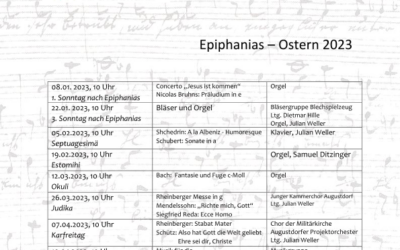 Epiphanias – Ostern 2023
08.01. 2023, 10 Uhr
1. Sonntag nach Epiphanias
Concerto „Jesus ist kommen“
Nicolas Bruhns: Präludium in e
Orgel
22.01. 2023, 10 Uhr
3. Sonntag nach Epiphanias
Bläser und Orgel
Bläsergruppe Blechspielzeug
Ltg. Dietmar Hille
Orgel, Julian Weller
05.02. 2023, 10 Uhr
Septuagesimä
Shchedrin: A la Albeniz - Humoresque
Schubert: Sonate in a
Klavier, Julian Weller
19.02. 2023, 10 Uhr
Estomihi
Orgel, Samuel Ditzinger
12.03. 2023, 10 Uhr
Okuli
Bach: Fantasie und Fuge c-Moll
Orgel
26.03. 2023, 10 Uhr
Judika
Rheinberger Messe in g
Mendelssohn: „Richte mich, Gott“
Siegfried Reda: Ecce Homo
Junger Kammerchor Augustdorf
Ltg. Julian Weller
07.04. 2023, 10 Uhr
Karfreitag
Rheinberger: Stabat Mater
Schütz: Also hat Gott die Welt geliebt
Ehre sei dir, Christe
Chor der Militärkirche
Augustdorfer Projektorchester
Ltg. Julian Weller